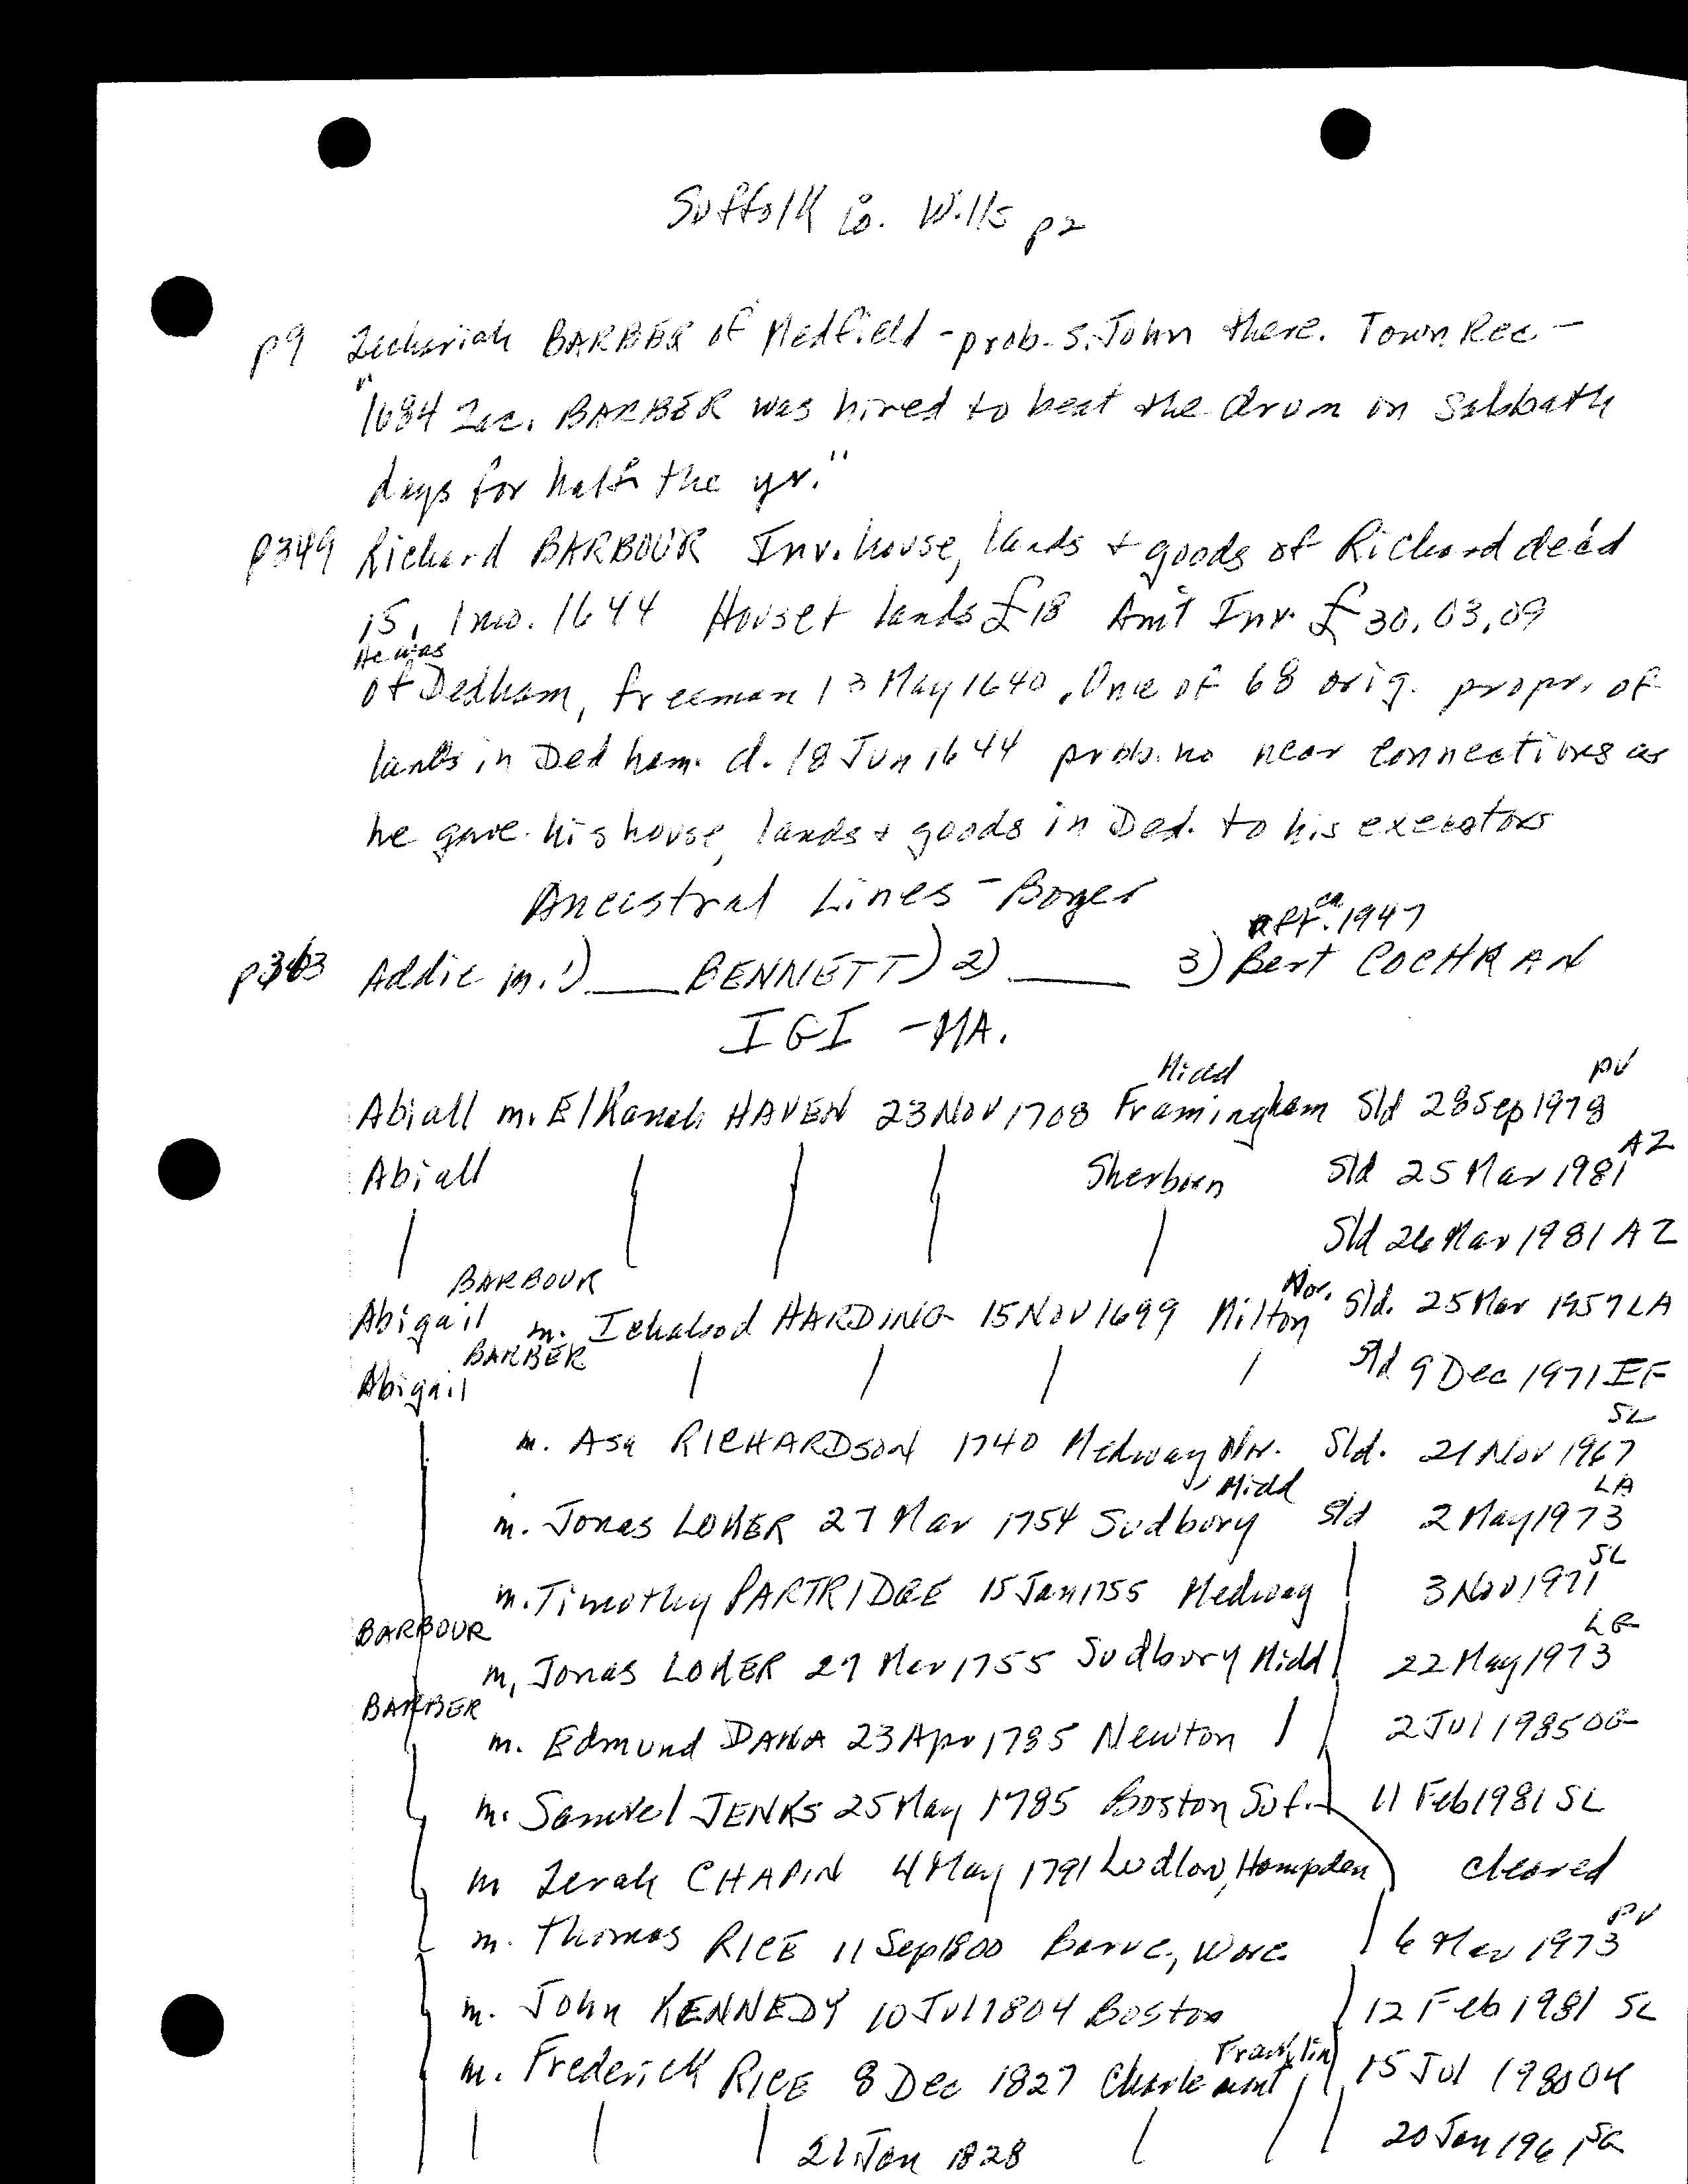 Suffolk Co. Wills p2
p9 Zechariah BARBER of Medfield - prob. s. John there. Town Rec -
"1684 Zac. BARBER was hired to beat the drum on Sabbath
days for half the yr."
p349 Richard BARBOUR Inv. house, lands + goods of Richard dec'd
15, 1 mo. 1644 House + lands £18 Am't Inv. £30.03.09
He was
of Dedham, freeman 13 May 1640. One of 68 orig. propr. of
lands in Dedham. d. 18 Jun 1644 prob. no near connections as
he gave his house, lands + goods in Ded. to his executors
Ancestral Lines - Boyer
aft. ca 1947
p363 Addie m. 1) ___ BENNETT) 2) ___ 3) Bert COCHRAN
IGI - MA.
Midd PV
Abiall m. Elkanah HAVEN 23 Nov 1708 Framingham Sld 28 Sep 1978
Abiall Sherborn Sld 25 Mar 1981 AZ
Sld 26 Mar 1981 AZ
BARBOUR Nor.
Abigail m. Ichabod HARDING 15 Nov 1699 Milton Sld. 25 Mar 1957 LA
BARBER
Abigail Sld 9 Dec 1971 IF
SL
m. Asa RICHARDSON 1740 Medway Nor. Sld. 21 Nov 1967
Midd LA
m. Jonas LOKER 27 Mar 1754 Sudbury Sld 2 May 1973
SL
m. Timothy PARTRIDGE 15 Jan 1755 Medway 3 Nov 1971
BARBOUR LG
m. Jonas LOKER 27 Mar 1755 Sudbury Midd 22 May 1973
BARBER
m. Edmund DANA 23 Apr 1785 Newton 2 Jul 1985 OG
m. Samuel JENKS 25 May 1785 Boston Suf. 11 Feb 1981 SL
m Zerah CHAPIN 4 May 1791 Ludlow, Hampden cleared
PV
m. Thomas RICE 11 Sep 1800 Barre, Worc. 6 Mar 1973
m. John KENNEDY 10 Jul 1804 Boston 12 Feb 1981 SL
Franklin
m. Frederick RICE 8 Dec 1827 Charlemont 15 Jul 1980 OK
21 Jan 1828 20 Jan 1961 SG